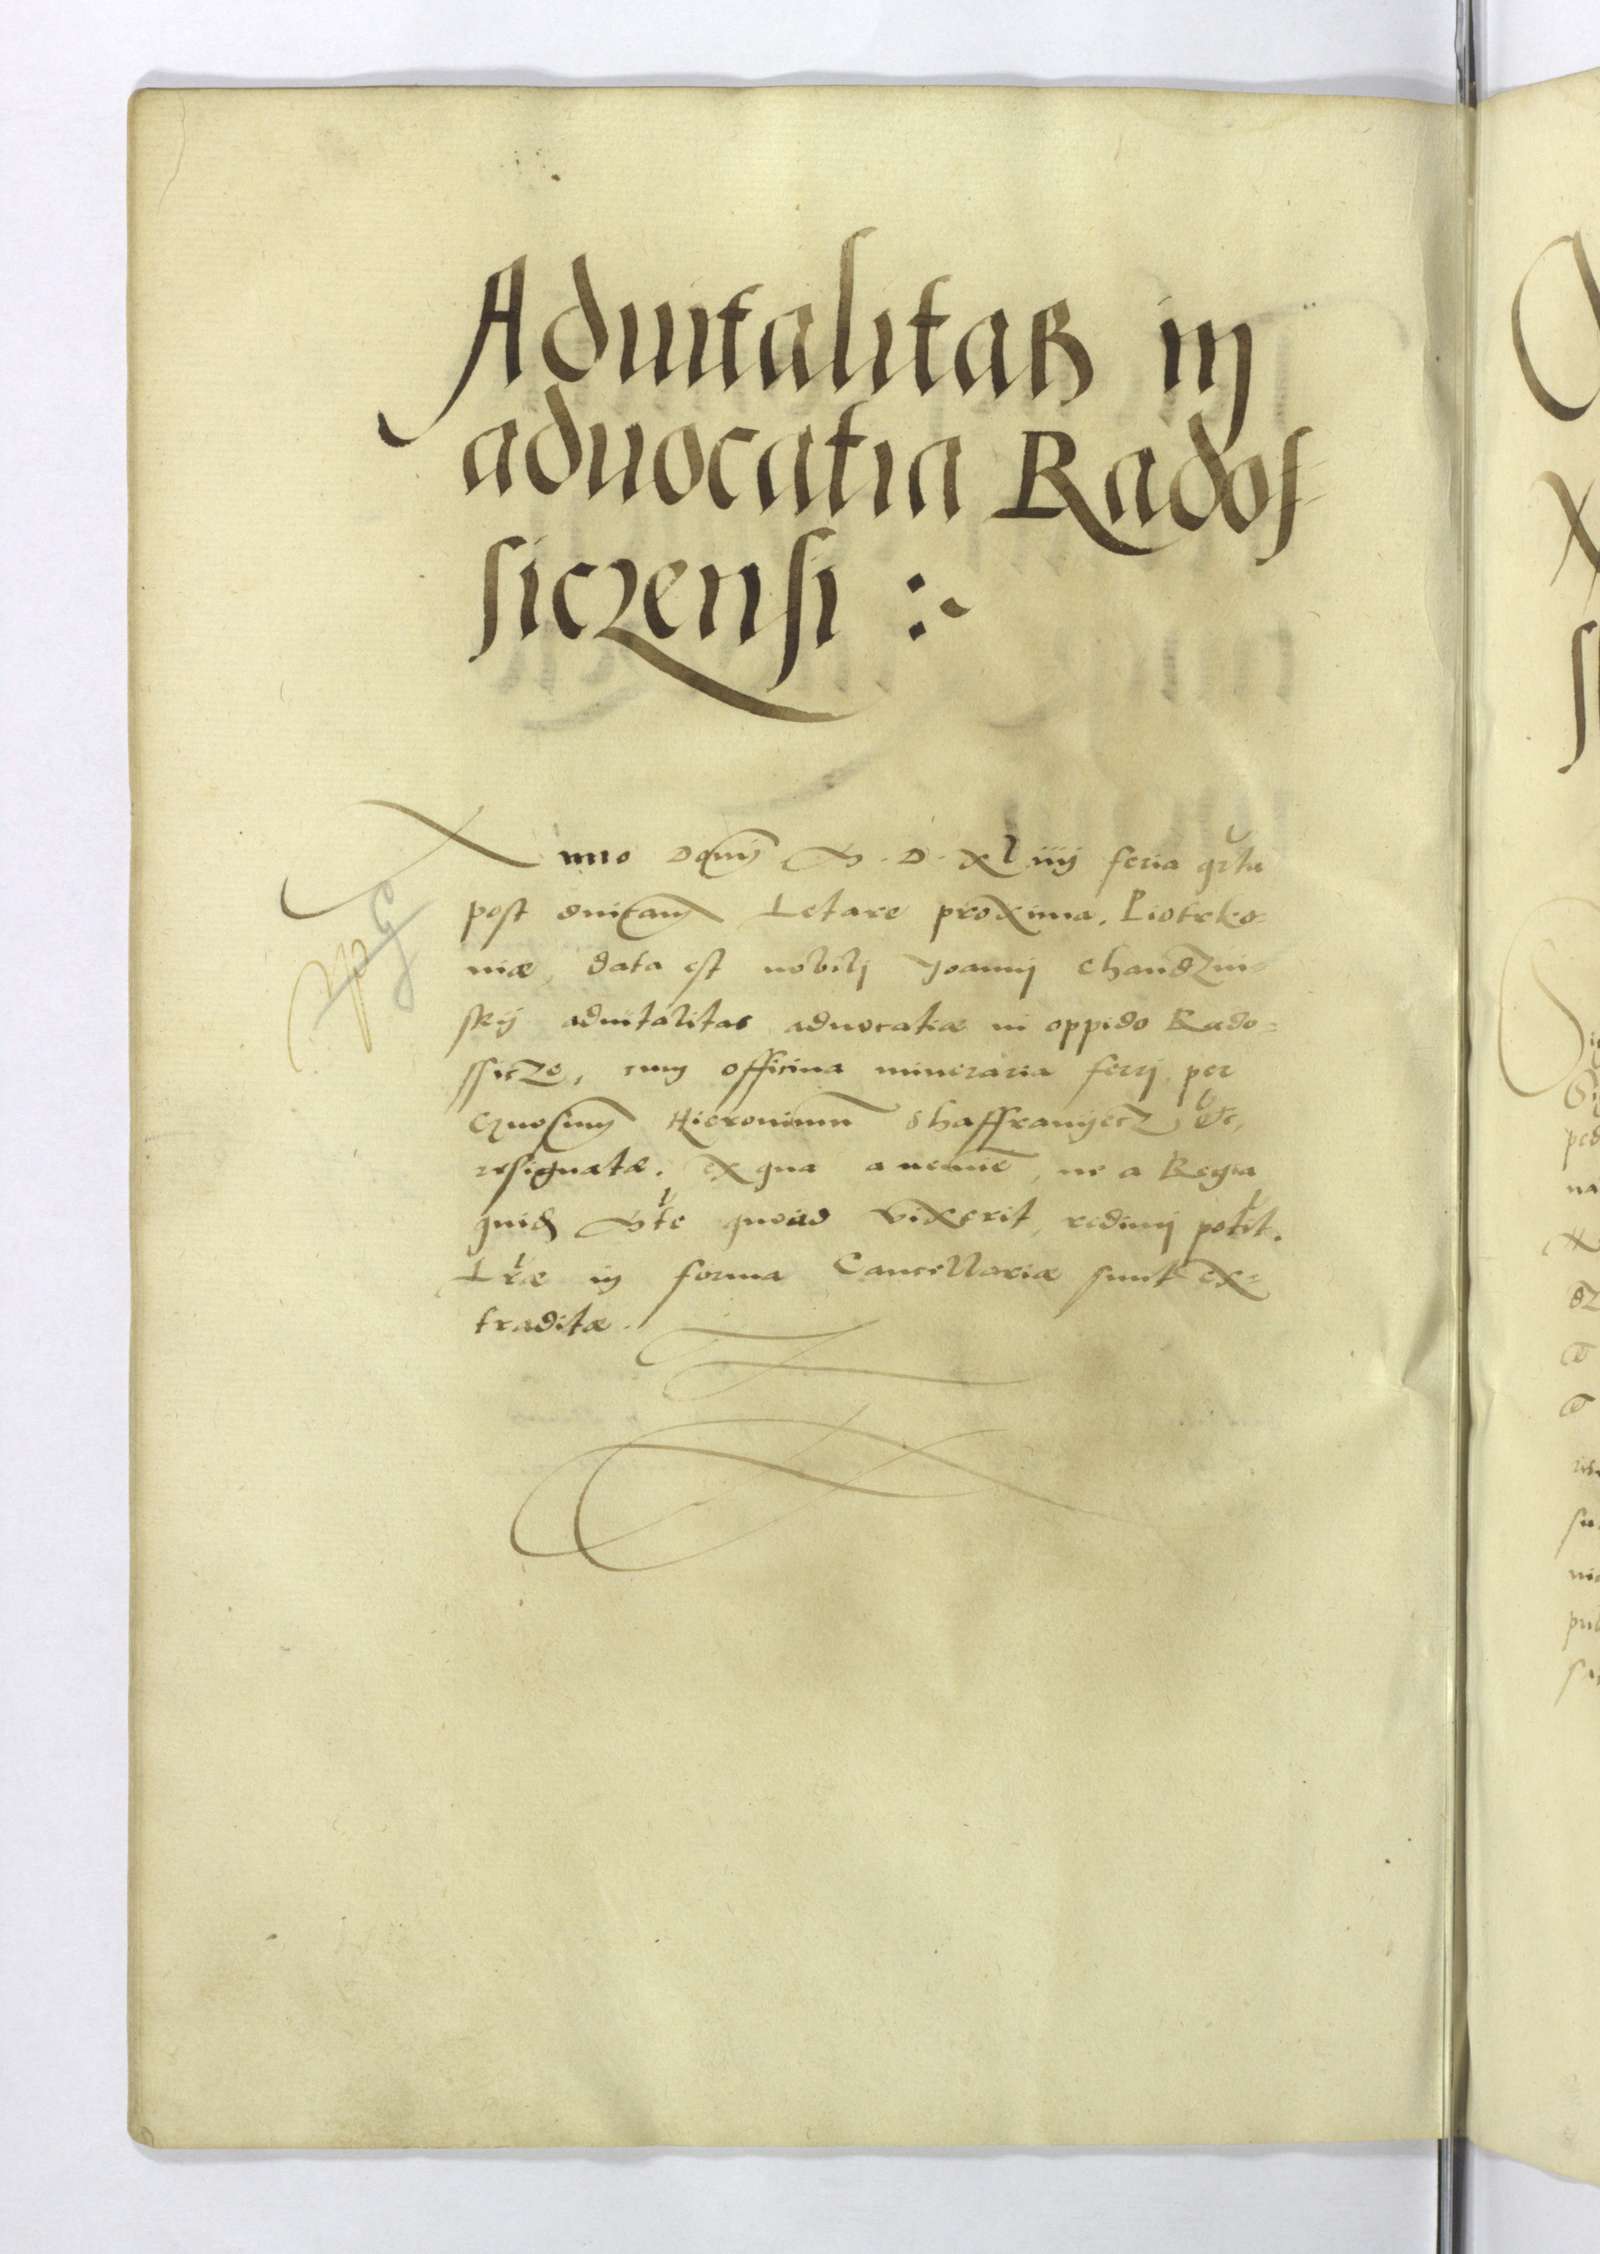 Aduitalitas in
aduocatia Radoſ-
ſiczensi :~
Anno Domj M. D. xliiij feria qrta
post dnicam Letare proxima. Piotrko-
niæ, data est nobilj Joannj Chandzin-
skij aduitalitas aduocatiæ in oppido Rado-
ssicze, cum officina mineraria ferrj per
Hieronimu Shaffranyecz etc,
resignatæ. ex qua a nemie, ne a Regia
quid Mte quoad vixerit, redimj potit.
Lræ in forma Cancellariæ sunt ex-
traditæ.